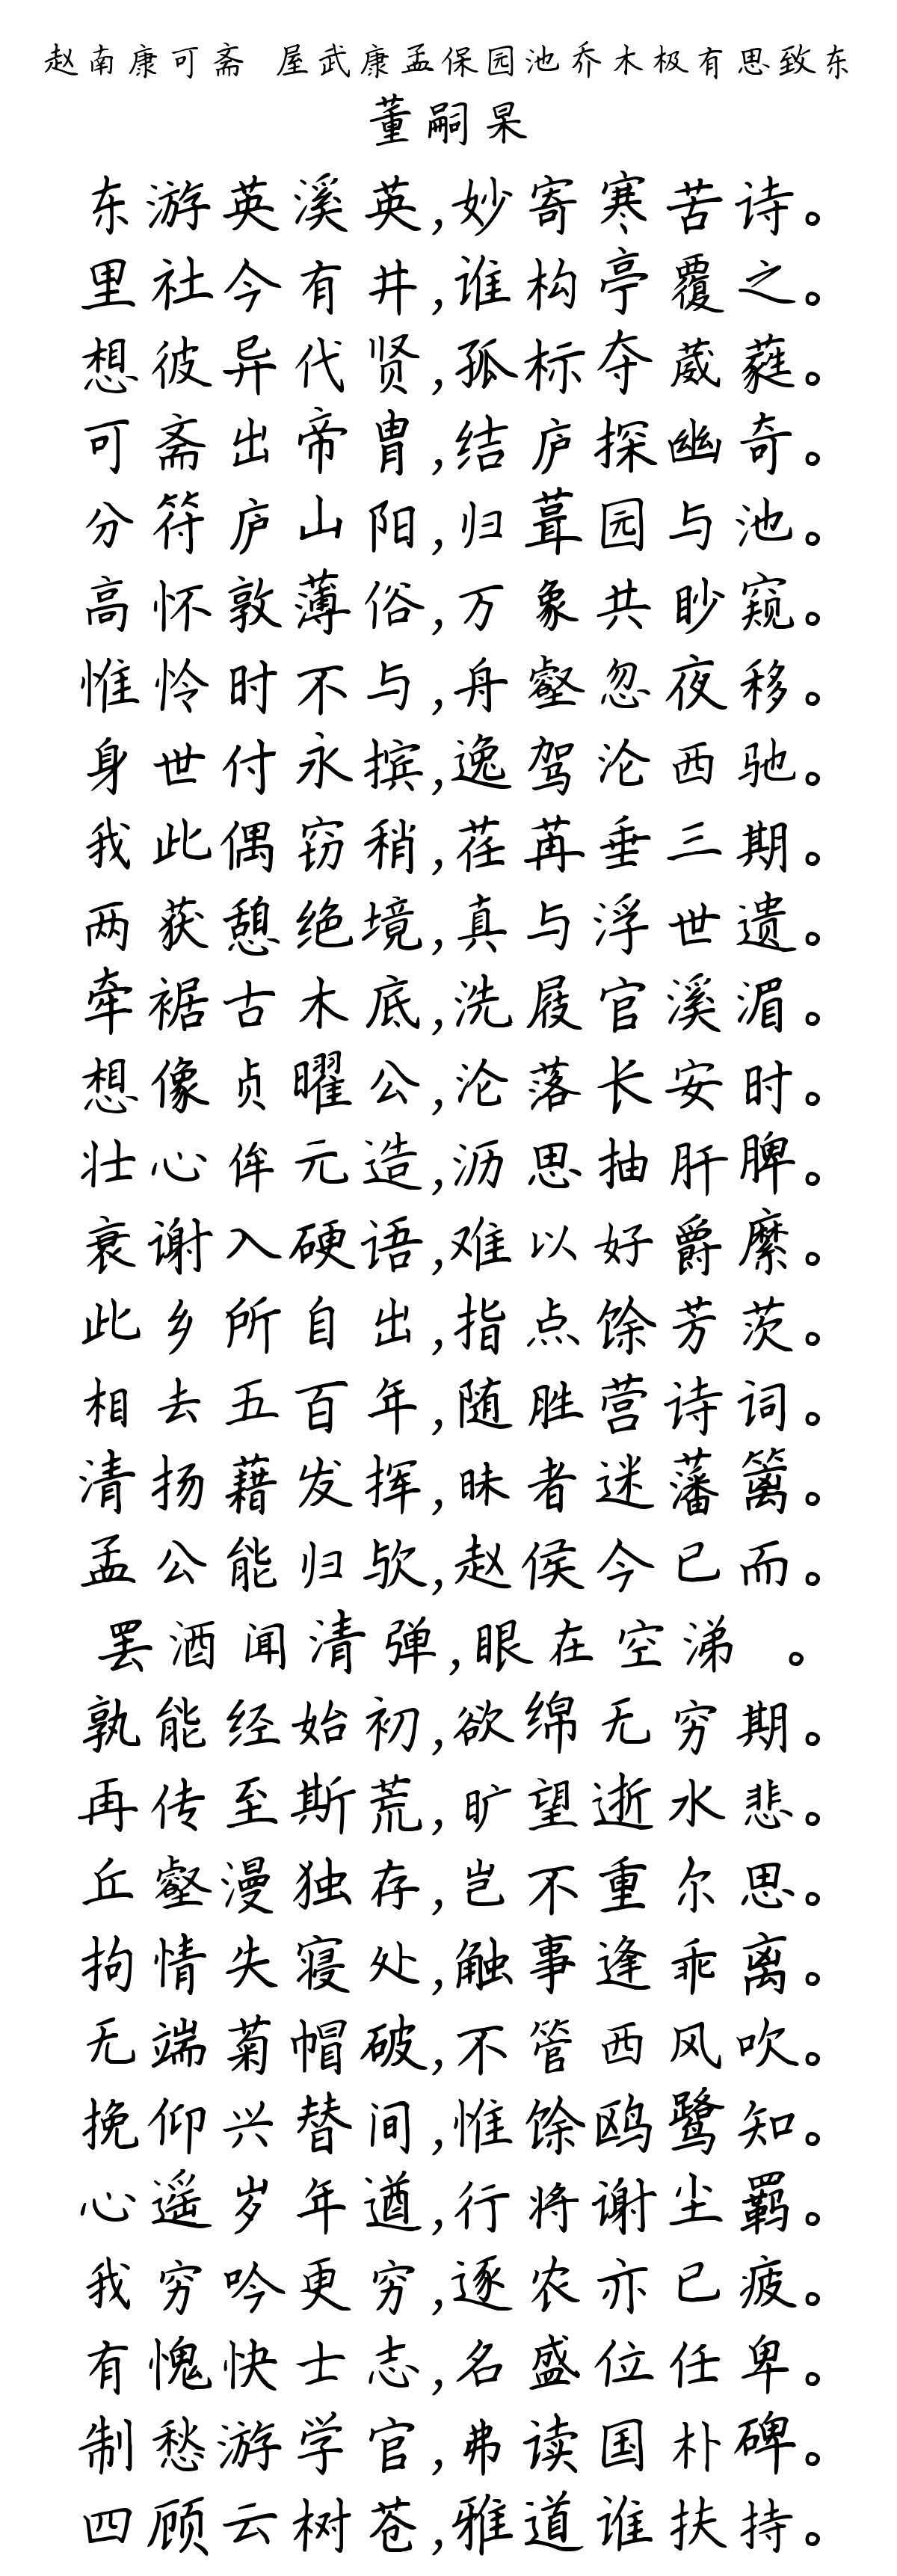 赵南康可斋 屋武康孟保园池乔木极有思致东
董嗣杲
东游英溪英,妙寄寒苦诗。
里社今有井,谁构亭覆之。
想彼异代贤,孤标夺葳蕤。
可斋出帝胄,结庐探幽奇。
分符庐山阳,归葺园与池。
高怀敦薄俗,万象共眇窥。
惟怜时不与,舟壑忽夜移。
身世付永摈,逸驾沦西驰。
我此偶窃稍,荏苒垂三期。
两获憩绝境,真与浮世遗。
牵裾古木底,洗屐官溪湄。
想像贞曜公,沦落长安时。
壮心侔元造,沥思抽肝脾。
衰谢入硬语,难以好爵縻。
此乡所自出,指点馀芳茨。
相去五百年,随胜营诗词。
清扬藉发挥,昧者迷藩篱。
孟公能归欤,赵侯今已而。
罢酒闻清弹,眼在空涕 。
孰能经始初,欲绵无穷期。
再传至斯荒,旷望逝水悲。
丘壑漫独存,岂不重尔思。
拘情失寝处,触事逢乖离。
无端菊帽破,不管西风吹。
挽仰兴替间,惟馀鸥鹭知。
心遥岁年遒,行将谢尘羁。
我穷吟更穷,逐农亦已疲。
有愧快士志,名盛位任卑。
制愁游学官,弗读国朴碑。
四顾云树苍,雅道谁扶持。